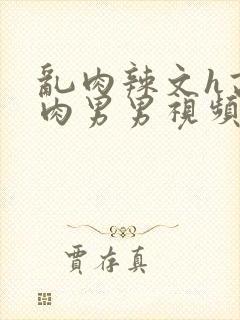 亂肉辣文h
肉男男視頻
賈存真